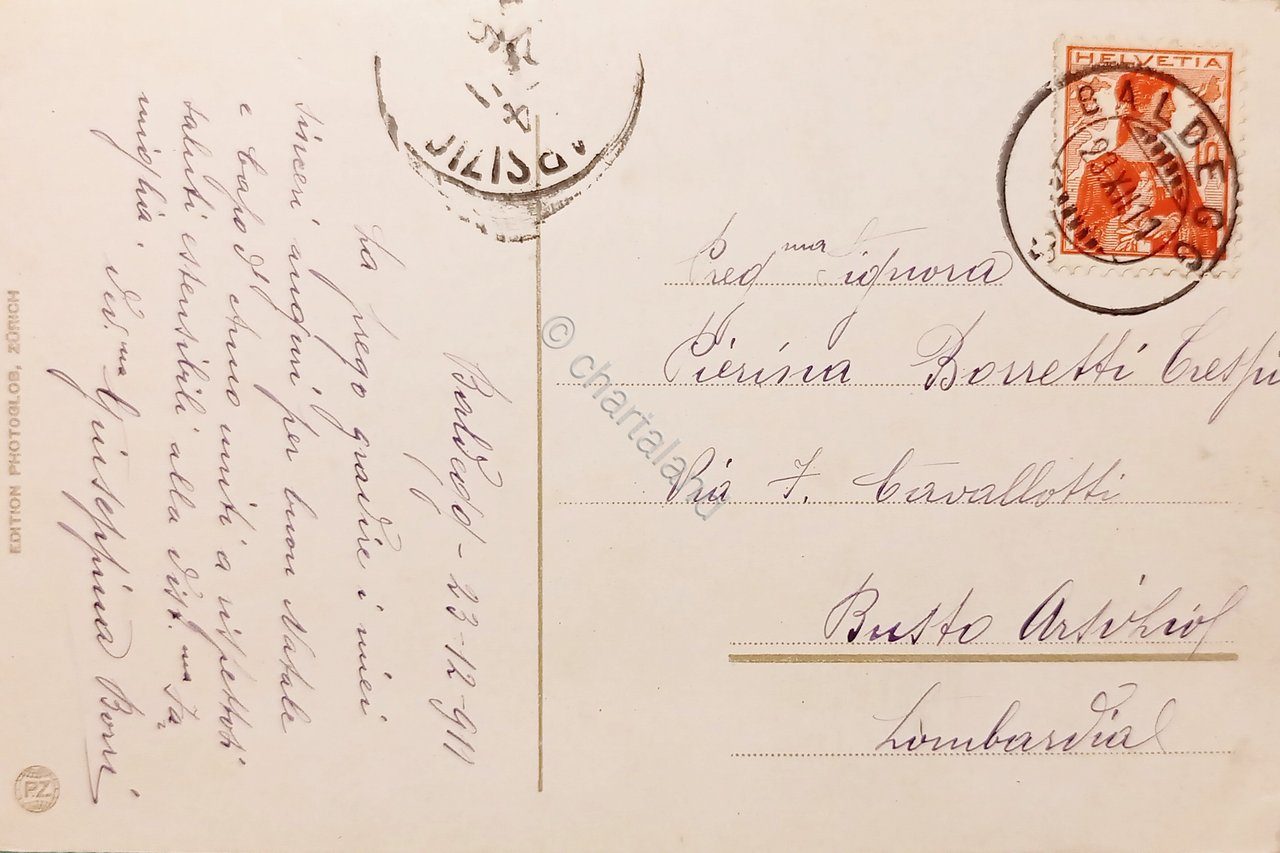 Baldegg - 23-12-911
La prego gradire i miei
sinceri auguri per buon Natale
e Capo d'Anno uniti a rispettosi
saluti estensibili alla Dist.ma Fa
miglia.
Dev.ma Giuseppina Borri
EDITION PHOTOGLOB, ZÜRICH
PZ
HELVETIA
BALDEGG
23.XII.11
Preg ma Signora
Pierina Borretti Crespi
Via F. Cavallotti
Busto Arsizio
Lombardia
© chartaland